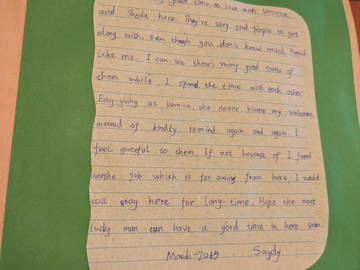 good time to live with Veronica
and Sheila here. They're very good people to get
along with, even though you don't know much French
like me. I can see there's many good traits of
them while I spend the time with each other.
Easy-going as Vernica, she never blame my
instead of kindly remind again and again. I
feel grateful to them. If not because of I found
another job which is far away from here, I would
still stay here for long-time. Hope the next
lucky man can have a good time in here
March-2015 Saydy